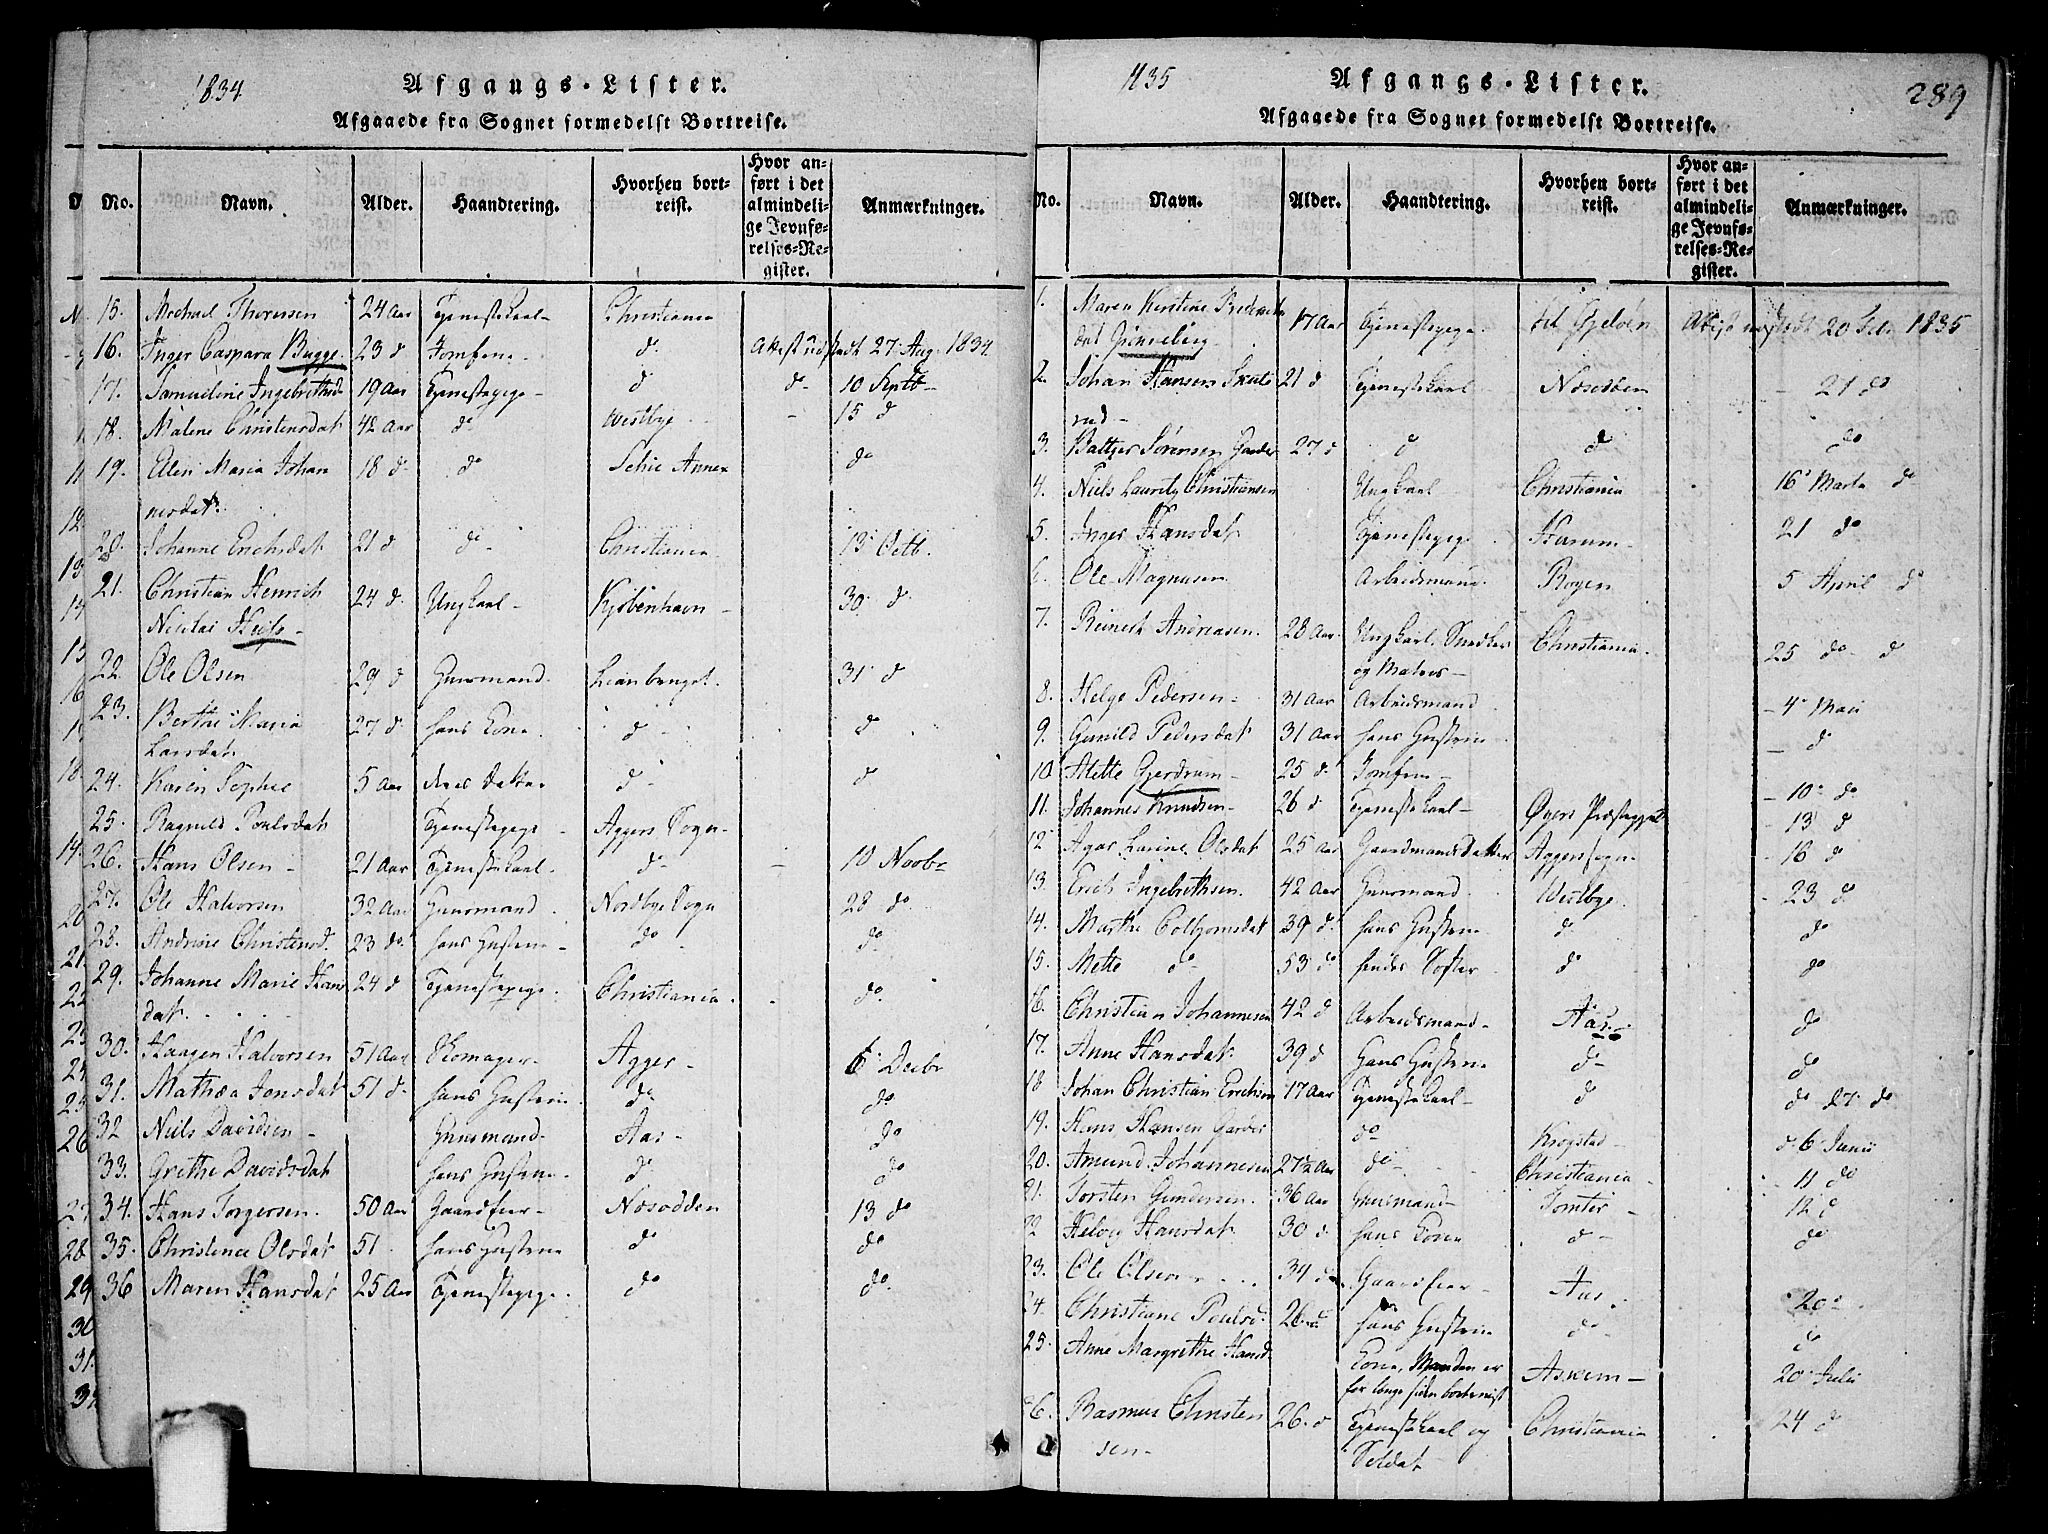 1834
Afgangs-Lister.
Afgaaede fra Sognet formedelst Bortreise.
No. Navn. Alder. Haandtering. Hvorhen bortreist. Hvor anført i det almindelige Jevnførelses-Register. Anmærkninger.
15. Michael Thoresen 24 Aar Tjenestekarl Christiania
16. Inger Caspara Bugge 23 d Jomfrue d. Attest udstædt 27 Aug. 1834
17. Samueline Ingebrethsd 19 Aar Tjenestepige d d 10 Septb
18. Malene Christensdat 42 Aar d Westbye 15 d
19. Elen Maria Johan 18 d d Schie Annex do
nesdat
20. Johanne Erichsdat 21 d d Christiania 13 Octb.
21. Christian Henrich 24 d. Ungkarl Kjøbenhavn 30 d
Nicolai
22. Ole Olsen 29 d Huusmand 31 d
23. Berthe Maria 27 d hans Kone d d
Larsdat
24. Karen Sophie 5 Aar deres Datter d d
25. Ragnild Poulsdat Tjenestepige Aggers Sogn
26. Hans Olsen 21 Aar Tjenestekarl do 10 Novbr
27. Ole Halvorsen 32 Aar Huusmand Nordbye Sogn 28 do
28. Andrine Christensd. 23 do hans Hustrue do do
29. Johanne Marie Hans 24 d Tjenestepige Christiania do
dat
30. Haagen Halvorsen 51 Aar Skomager Agger 6 Decbr
31. Mathea Jonsdat 51 d. hans Hustrue do do
32 Niels Davidsen Huusmand Aas do
33. Grethe Davidsdat hans Hustrue d do
34. Hans Torgersen 50 Aar Gaardfeier Nesodden 13 do
35. Christence Olsdat 51 hans Hustrue d do
36 Maren Hansdat 25 Aar Tjenestepige do do
1835
Afgangs-Lister.
289
Afgaaede fra Sognet formedelst Bortreise.
No. Navn. Alder. Haandtering. Hvorhen bortreist. Hvor anført i det almindelige Jevnførelses-Register. Anmærkninger.
1. Maren Kirstine 17 Aar Tjenestepige til Attest udstædt 20 Febr 1835
dat
2. Johan Hansen Skute 21 d Tjenestekarl Nesodden 21 do
rud
3. Sørensen 27 d d d do
4. Niels Lauritz Christiansen Ungkarl Christiania 16 Marts d
5. Inger Hansdat Tjenestepige 21 do
6. Ole Magnusen Arbeidsmand Røgen 5 April d
7. Reinert Andreasen 28 Aar Ungkarl, Snedker Christiania 25 do d
og
8. Helge Pedersen 31 Aar Arbeidsmand 4 Mai
9. Gunild Pedersdat 31 Aar hans Hustrue d
10. Mette Gjerdrum 25 d. Jomfrue 10 do
11. Johannes Knudsen 26 d Tjenestekarl Øyers Præstegjeld 13 d
12 Larine Olsdat 25 Aar Gaardmandsdatter Aggersogn 16 d
13. Erich Ingebrethsen 42 Aar Huusmand Westbye 23 d
14. Marthe Colbjornsdat 39 d. hans Hustrue d do
15. Mette do 53 do hendes Søster d do
16. Christian Johannesen 42 d Arbeidsmand Aas do
17. Anne Hansdat 39 d Hans Hustrue d d
18 Johan Christian Erichsen 17 Aar Tjenestekarl d do 27 do
19. Hans Hansen do Krogstad d 6 Junii
20. Amund Johannesen 27½ Aar do Christiania 11 do
21. Torsten Gundersen 36 Aar Huusmand Tomter 12 d
22 Helvig Hansdat 30 d hans Kone d do
23. Ole Olsen 34 d Gaardfeier Aas 20
24. Christiane Poulsd. 26 d hans Hustrue d d
25. Anne Margrethe Hansd. Kone, Manden er 20 Julii
for længe siden bortreist
26. Rasmus Christen 26 d Tjenestekarl og Christiania 24 d
sen Soldat